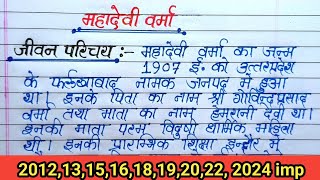 महादेवी वर्मा
जीवन परिचय :- महादेवी वर्मा का जन्म
1907 ई. को उत्तरप्रदेश
के फर्रुखाबाद नामक जनपद में हुआ
था। इनके पिता का नाम श्री गोविन्दप्रसाद
वर्मा तथा माता का नाम हेमरानी देवी था।
इनकी माता परम विदुषी धार्मिक महिला
थी। इनकी प्रारम्भिक शिक्षा इन्दौर में
2012,13,15,16,18,19,20,22, 2024 imp